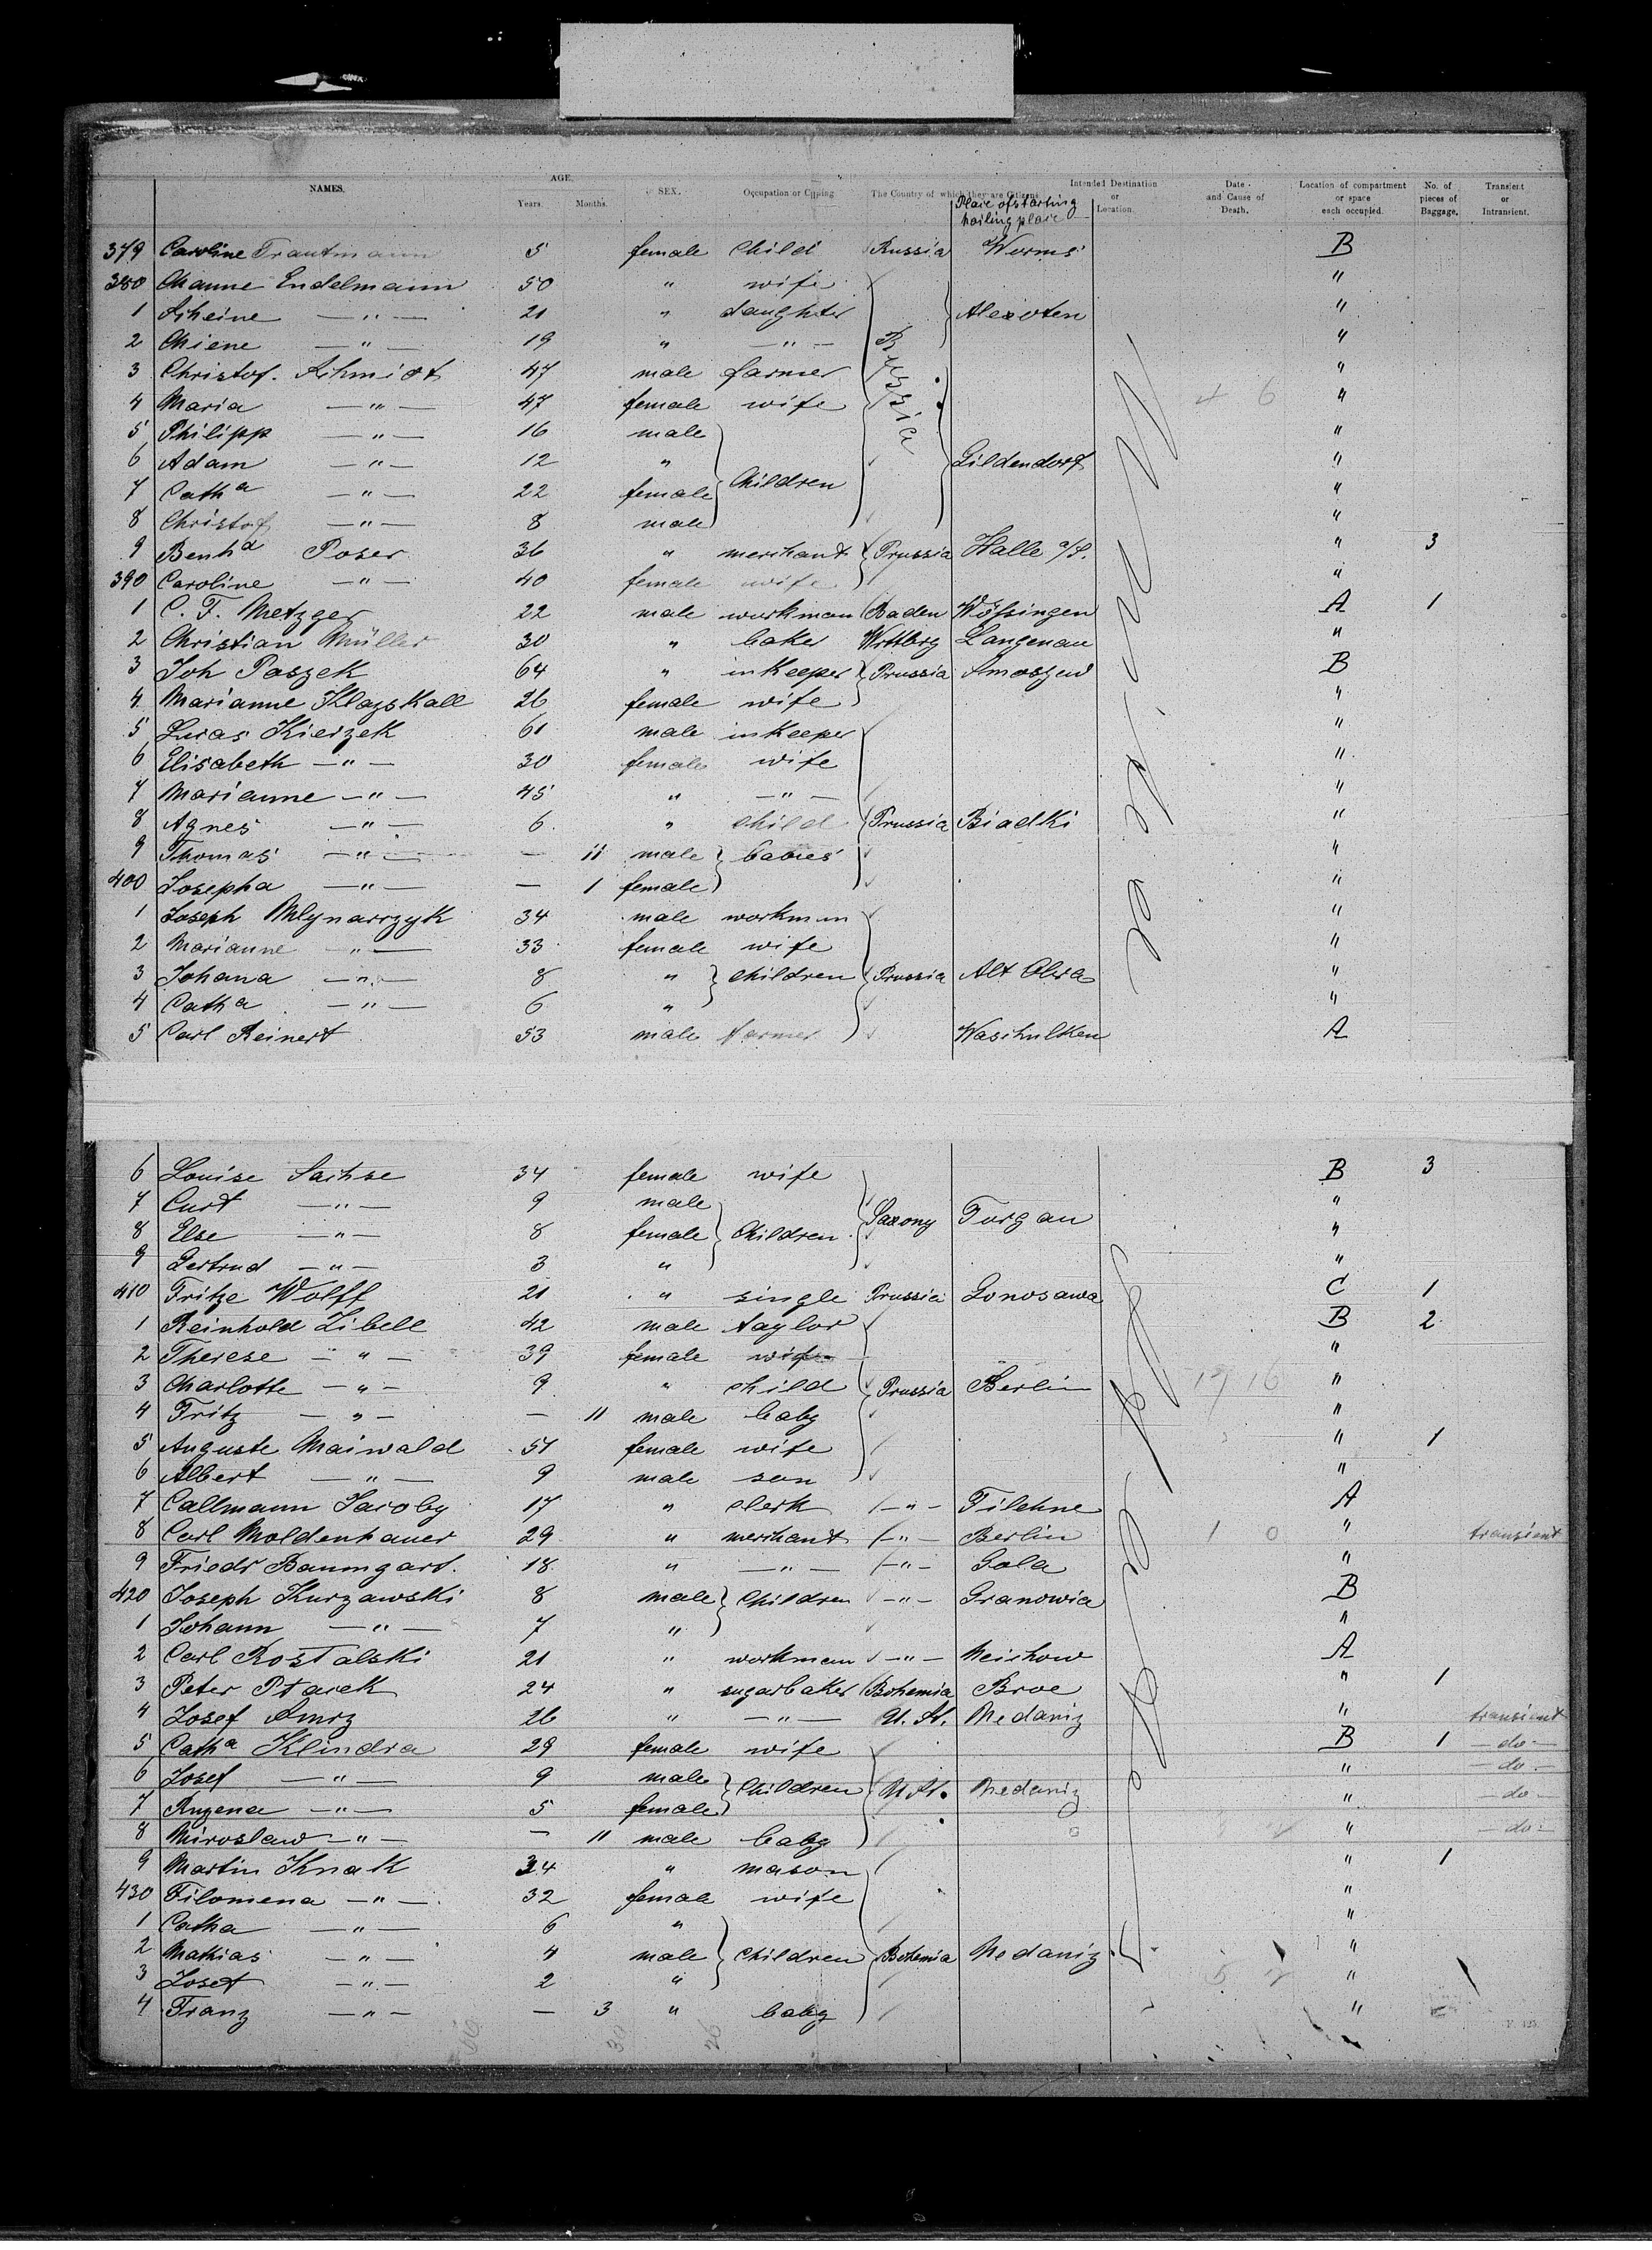 NAMES. AGE. Years. Months. SEX. Occupation or Calling The Country of which they are Citizens Intended Destination or Location. Date and Cause of Death. Location of compartment or space each occupied. No. of pieces of Baggage. Transient or Intransient.
Place of starting
hailing place
379 Caroline Trautmann 5 female Child Russia Worms B
380 Channe Endelmann 50 " wife "
1 Scheine —"— 21 " daughter Alexoten "
2 Chiene —"— 19 " —"— Russia "
3 Christof. Schmidt 47 male farmer "
4 Maria —"— 47 female wife 4 6 "
5 Philipp —"— 16 male "
6 Adam —"— 12 " Gildendorf "
7 Cath a —"— 22 female Children "
8 Christof —"— 8 male "
9 Benh d Poser 36 " merchant Prussia Halle a/S. " 3
390 Caroline —"— 40 female wife "
1 C. F. Metzger 22 male workman Baden Wössingen A 1
2 Christian Müller 30 " baker Wrttbrg Langenau "
3 Joh Paszek 64 " inkeeper Prussia Smoszew B
4 Marianne Klayskall 26 female wife "
5 Lucas Kierzek 61 male inkeeper "
6 Elisabeth —"— 30 female wife "
7 Marianne —"— 45 " —"— "
8 Agnes —"— 6 " child Prussia Biadki "
9 Thomas —"— — 11 male babies "
400 Josepha —"— — 1 female "
1 Joseph Mlynarrzyk 34 male workman "
2 Marianne —"— 33 female wife "
3 Johana —"— 8 " children Prussia Alt "
4 Cath a —"— 6 " "
5 Carl Reinert 53 male farmer Waschulken A
6 Louise Sachse 34 female wife B 3
7 Curt —"— 9 male "
8 Else —"— 8 female Children Saxony Torgau "
9 Gertrud —"— 3 " "
410 Fritze Wolff 21 " single Prussia Gonosawa C 1
1 Reinhold Zibell 42 male taylor B 2
2 Therese —"— 39 female wife "
3 Charlotte —"— 9 " child Prussia Berlin 17 16 "
4 Fritz —"— — 11 male baby "
5 Auguste Maiwald 51 female wife " 1
6 Albert —"— 9 male son "
7 Callmann Jacoby 17 " clerk —"— Filehne A
8 Carl Moldenhauer 29 " merchant —"— Berlin 1 0 " transient
9 Friedr Baumgart. 18 " —"— —"— Gola "
420 Joseph Kurzawski 8 male Children —"— Granowia B
1 Johann —"— 7 " "
2 Carl Rostalski 21 " workman —"— Meichow A
3 Peter Ptacek 24 " sugarbaker Bohemia Broe " 1
4 Josef Smrz 26 " —"— U. St. Medaniz " transient
5 Cath a Klindra 29 female wife B 1 —do—
6 Josef —"— 9 male Children " —do—
7 Ruzena —"— 5 female U St. Medaniz " —do—
8 Miroslaw —"— — 11 male baby " —do—
9 Martin Knak 34 " mason " 1
430 Filomena —"— 32 female wife "
1 Catha —"— 6 " "
2 Mathias —"— 4 male Children Bohemia Medaniz "
3 Josef —"— 2 " 5 "
4 Franz —"— — 3 " baby "